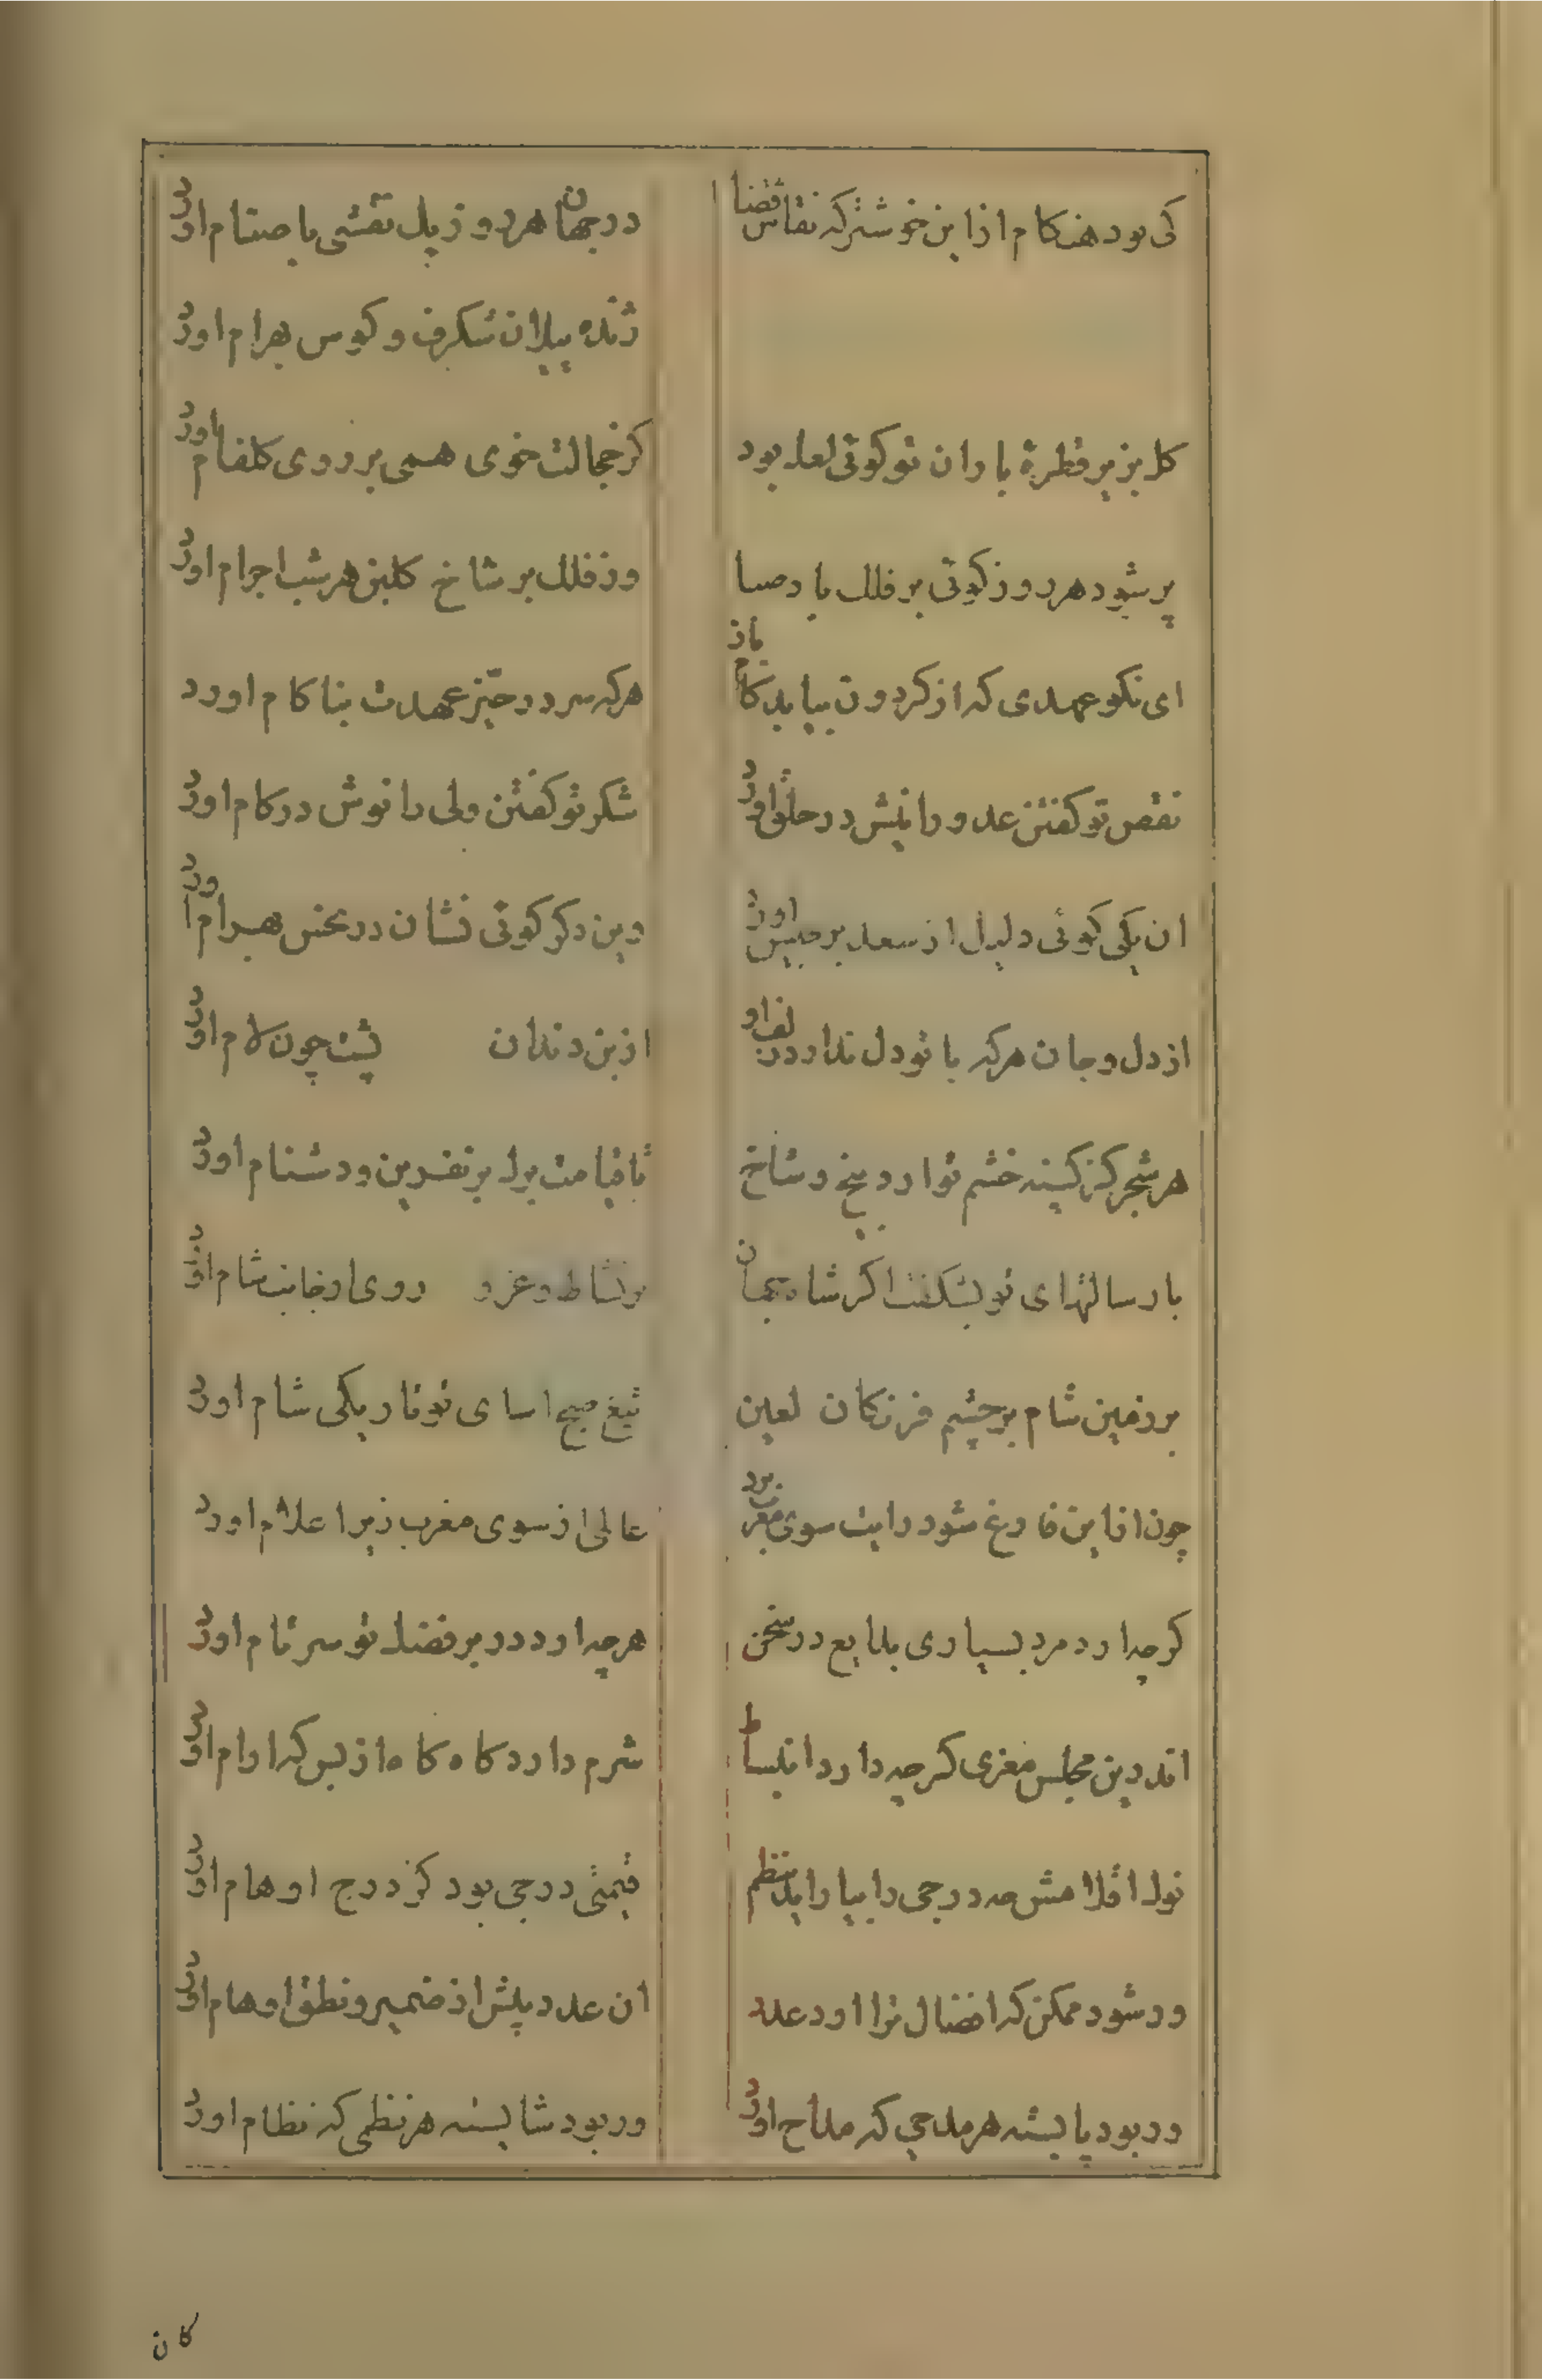 کی بود هنکام ازاین خوشترکه نقاش قضا
درجهان هردوز پل نقشی با صنام اورد
ژنده پیلان شکرف و کوس بهرام اورد
کل بزیر قطرۀ باران توکوئی لعل بود
کزخجالت خوی همی بر روی کلفام اورد
پرشود هرروز کوئی بر فلک باد صبا
وز فلک بر شاخ کلبن هرشب اجرام اورد
ای نکو عهدی که از کردون نیابد کام باز
هرکه سر در حیّز عهدت بناکام اورد
نقص توکفتن عدو را نیش در حلق اورد
شکر توکفتن ولی را نوش در کام اورد
ان یکی کوئی دلیل از سعد برجیس اورد
وین دکر کوئی نشان در نحس بهرام اورد
از دل و جان هرکه با تو دل ندارد
از بن دندان پشت چون لام اورد
هر شجر کز کینه خشم تو ارد بیخ و شاخ
تا قیامت برک بر نفرین و دشنام اورد
با رسالتهای تو بشکفت اکر شاه جهان
نشاط و عزو روی او جانب شام اورد
بر زمین شام بر چشم فرنکان لعین
تیغ صبح اسای تو تاریکی شام اورد
چون ازاین فارغ شود رایت سوی مغرب برد
عالمی از سوی مغرب زیر اعلام اورد
کرچه ارد مرد بسیاری بدایع در سخن
هرچه ارد در بر فضل تو سر تام اورد
اندرین مجلس معزی کرچه دارد انبساط
شرم دارد کاه کاه از بس که ابرام اورد
نوک اقلامش چه درجی را بیاراید بنظم
قیمتی درجی بود کز درج اوهام اورد
ور شود ممکن که افضال ترا ارد عدد
ان عدد پیش از ضمیر و نطق اوهام اورد
ور بود بایسته هر مدحی که مداح اورد
ور بود شایسته هر نظمی که نظام اورد
کان